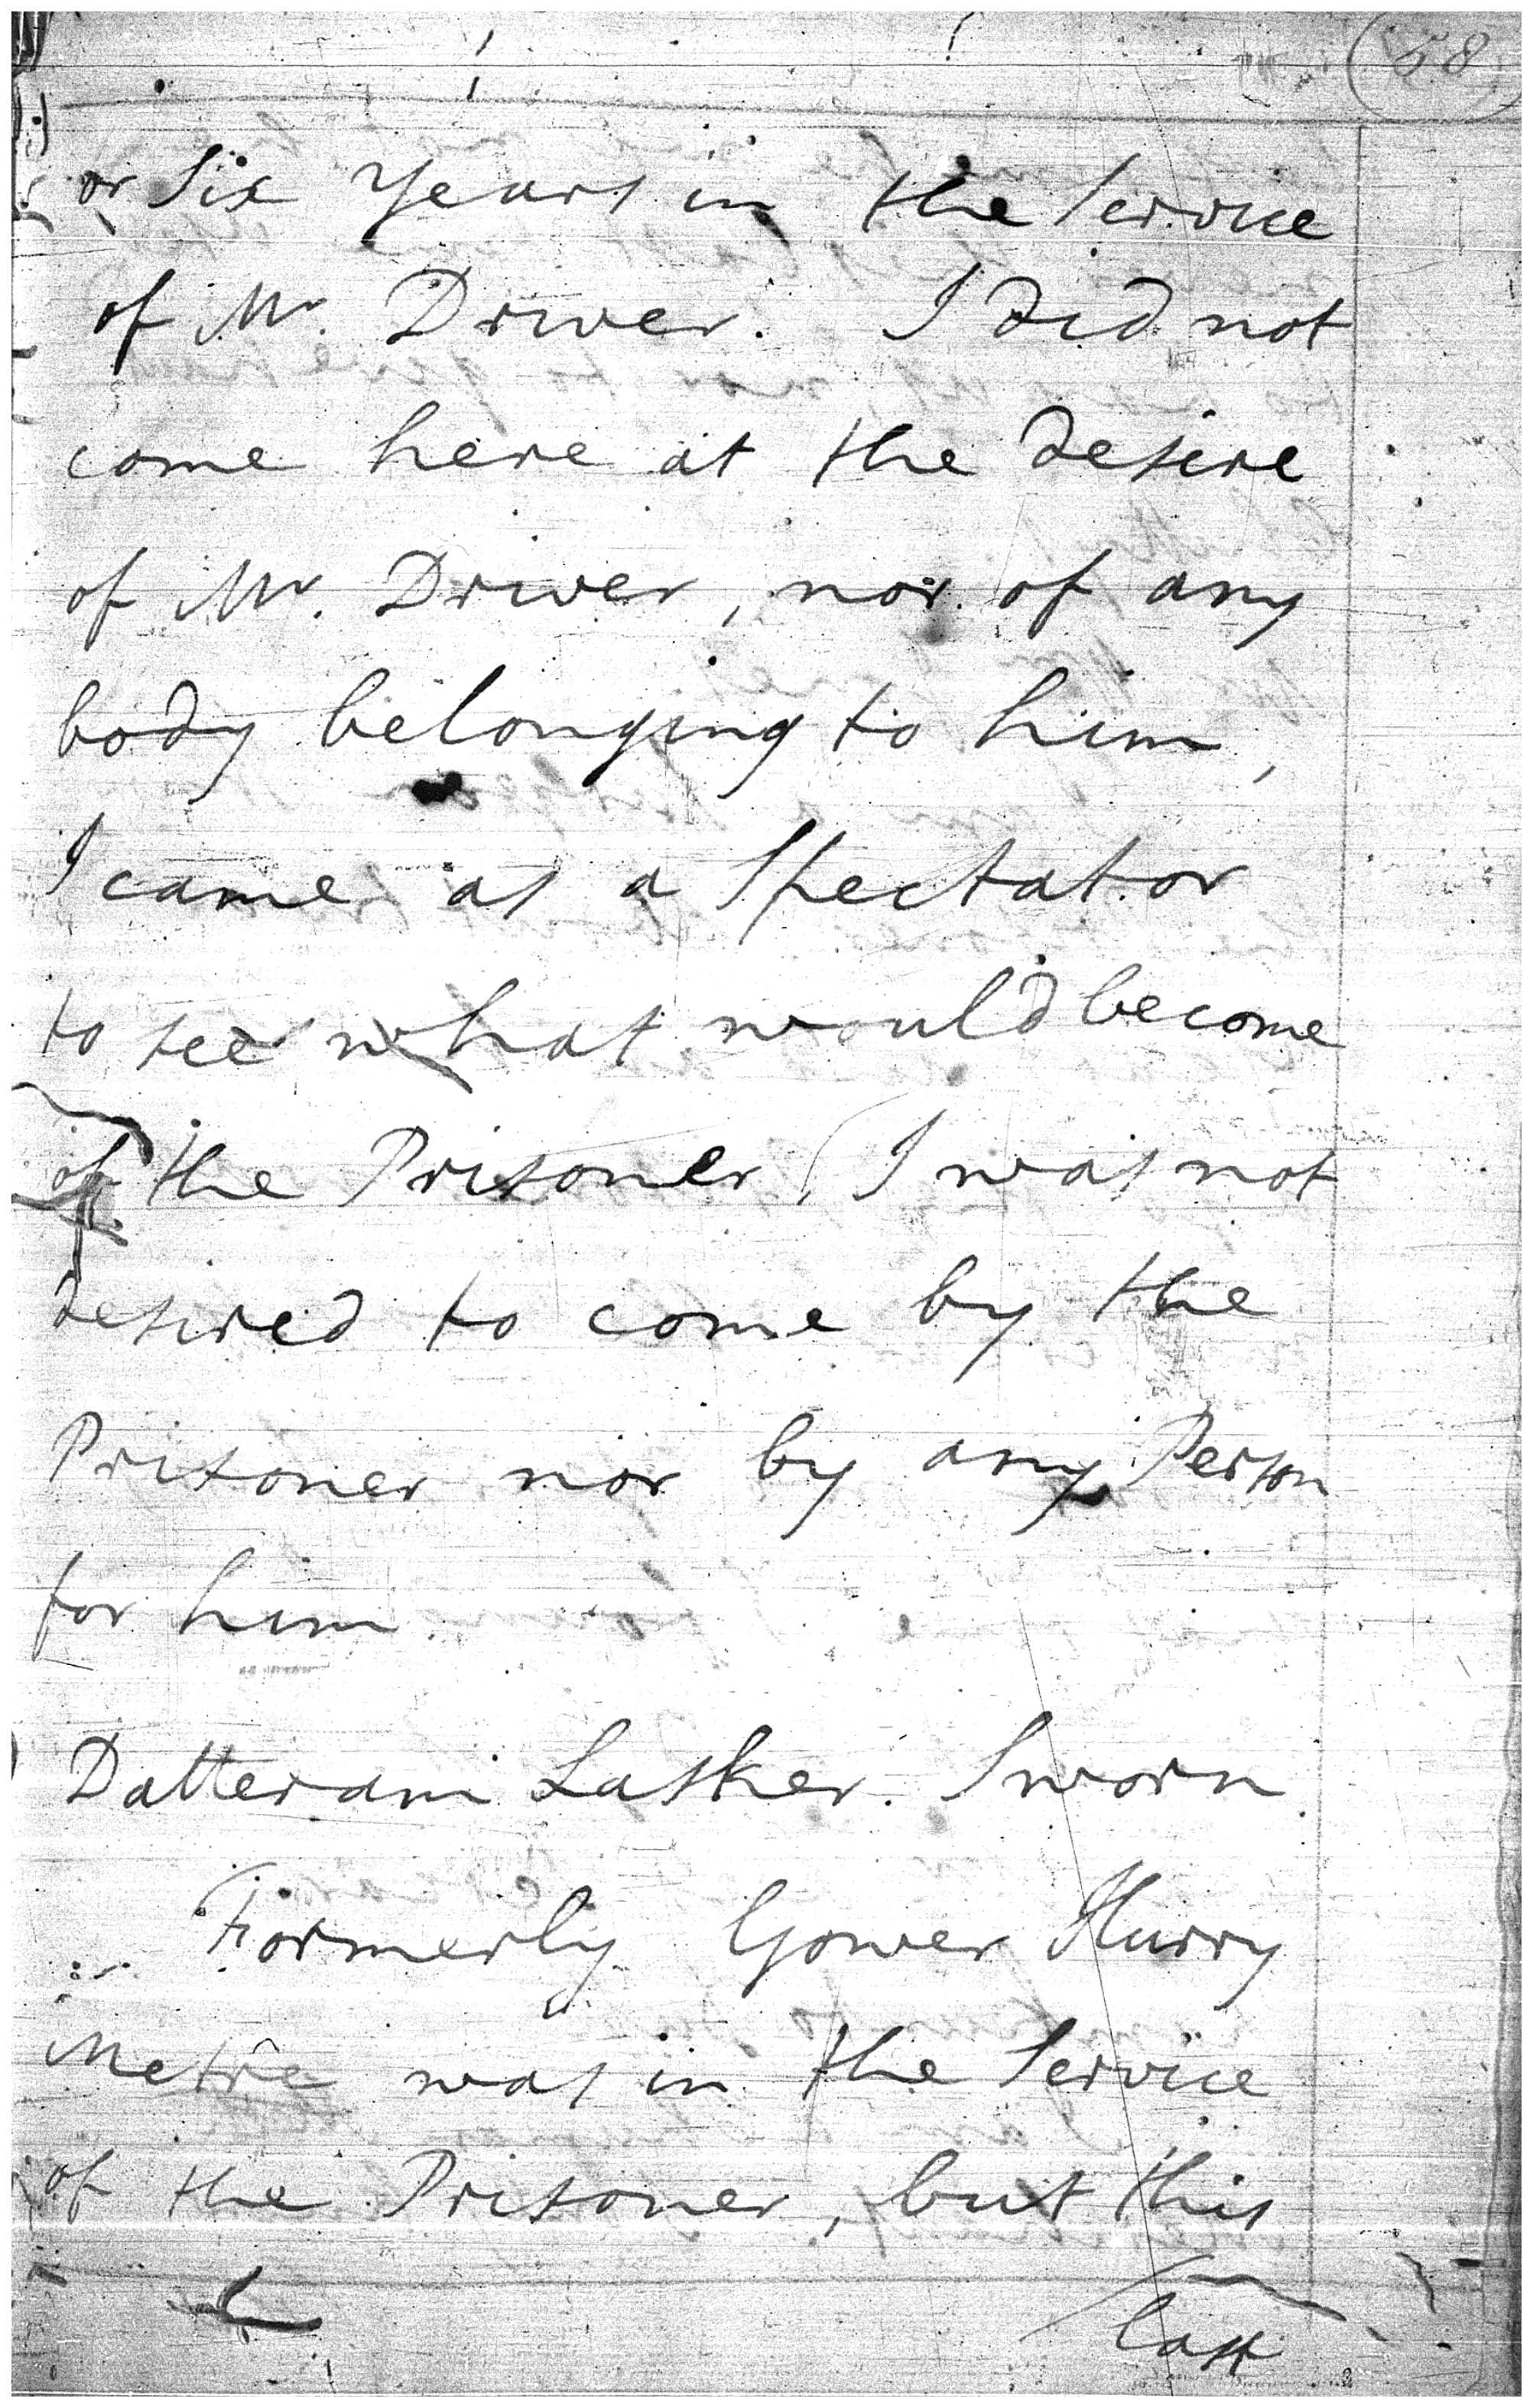 (58)
or Six Years in the Service
of Mr. Driver. I did not
come here at the desire
of Mr. Driver, nor of any
body belonging to him,
I came as a Spectator
to see what would become
of the Prisoner, I was not
desired to come by the
Prisoner nor by any Person
for him.
Datteram Lasker. Sworn.
Formerly Gower Hurry
Metre was in the Service
of the Prisoner, but this
last